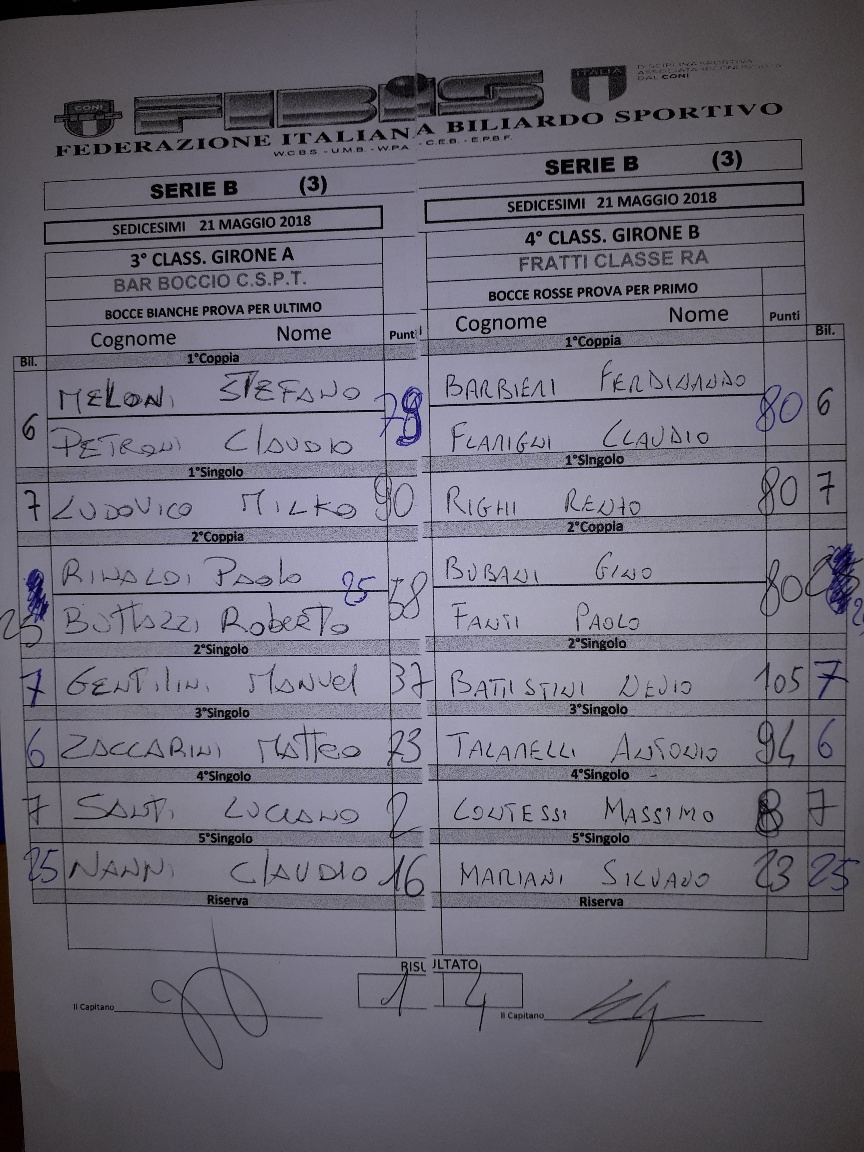 CONI
FIBIS
ITALIA
DISCIPLINA SPORTIVA
ASSOCIATA
DAL CONI
FEDERAZIONE ITALIANA BILIARDO SPORTIVO
W.C.B.S. - U.M.B. - W.P.A. - C.E.B. - E.P.B.F.
SERIE B (3)
SEDICESIMI 21 MAGGIO 2018
3° CLASS. GIRONE A
BAR BOCCIO C.S.P.T.
BOCCE BIANCHE PROVA PER ULTIMO
Cognome Nome Punti
Bil. 1°Coppia
MELONI STEFANO
6 PETRONI CLAUDIO
1°Singolo
7 LUDOVICO MILKO 90
2°Coppia
RINALDI PAOLO 25 58
25 BUTTAZZI ROBERTO
2°Singolo
7 GENTILINI MANUEL 37
3°Singolo
6 ZACCARINI MATTEO 73
4°Singolo
7 SANTI LUCIANO 2
5°Singolo
25 NANNI CLAUDIO 16
Riserva
SERIE B (3)
SEDICESIMI 21 MAGGIO 2018
4° CLASS. GIRONE B
FRATTI CLASSE RA
BOCCE ROSSE PROVA PER PRIMO
Cognome Nome Punti
1°Coppia Bil.
BARBIERI FERDINANDO 80 6
FLAMIGNI CLAUDIO
1°Singolo
RIGHI RENZO 80 7
2°Coppia
BUBANI GINO 80
FANTI PAOLO
2°Singolo
BATTISTINI NEVIO 105 7
3°Singolo
TALANELLI ANTONIO 94 6
4°Singolo
CONTESSI MASSIMO 8 7
5°Singolo
MARIANI SILVANO 23 25
Riserva
RISULTATO
1 4
Il Capitano
Il Capitano